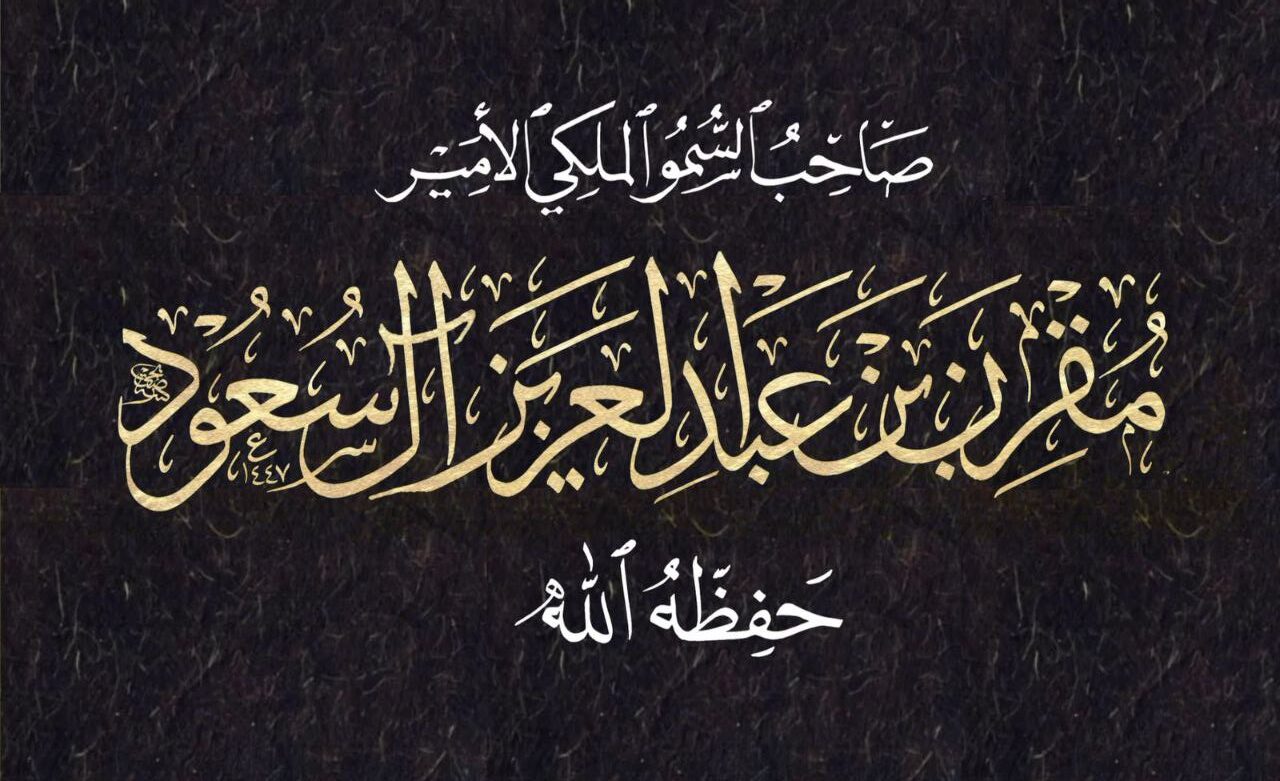 صَاحِبُ ٱلسُّمُو ٱلملكي ٱلأمير
مُقرن بن عبدالعزيز آل سُعُود
١٤٤٧
حَفِظَهُ ٱللّٰه